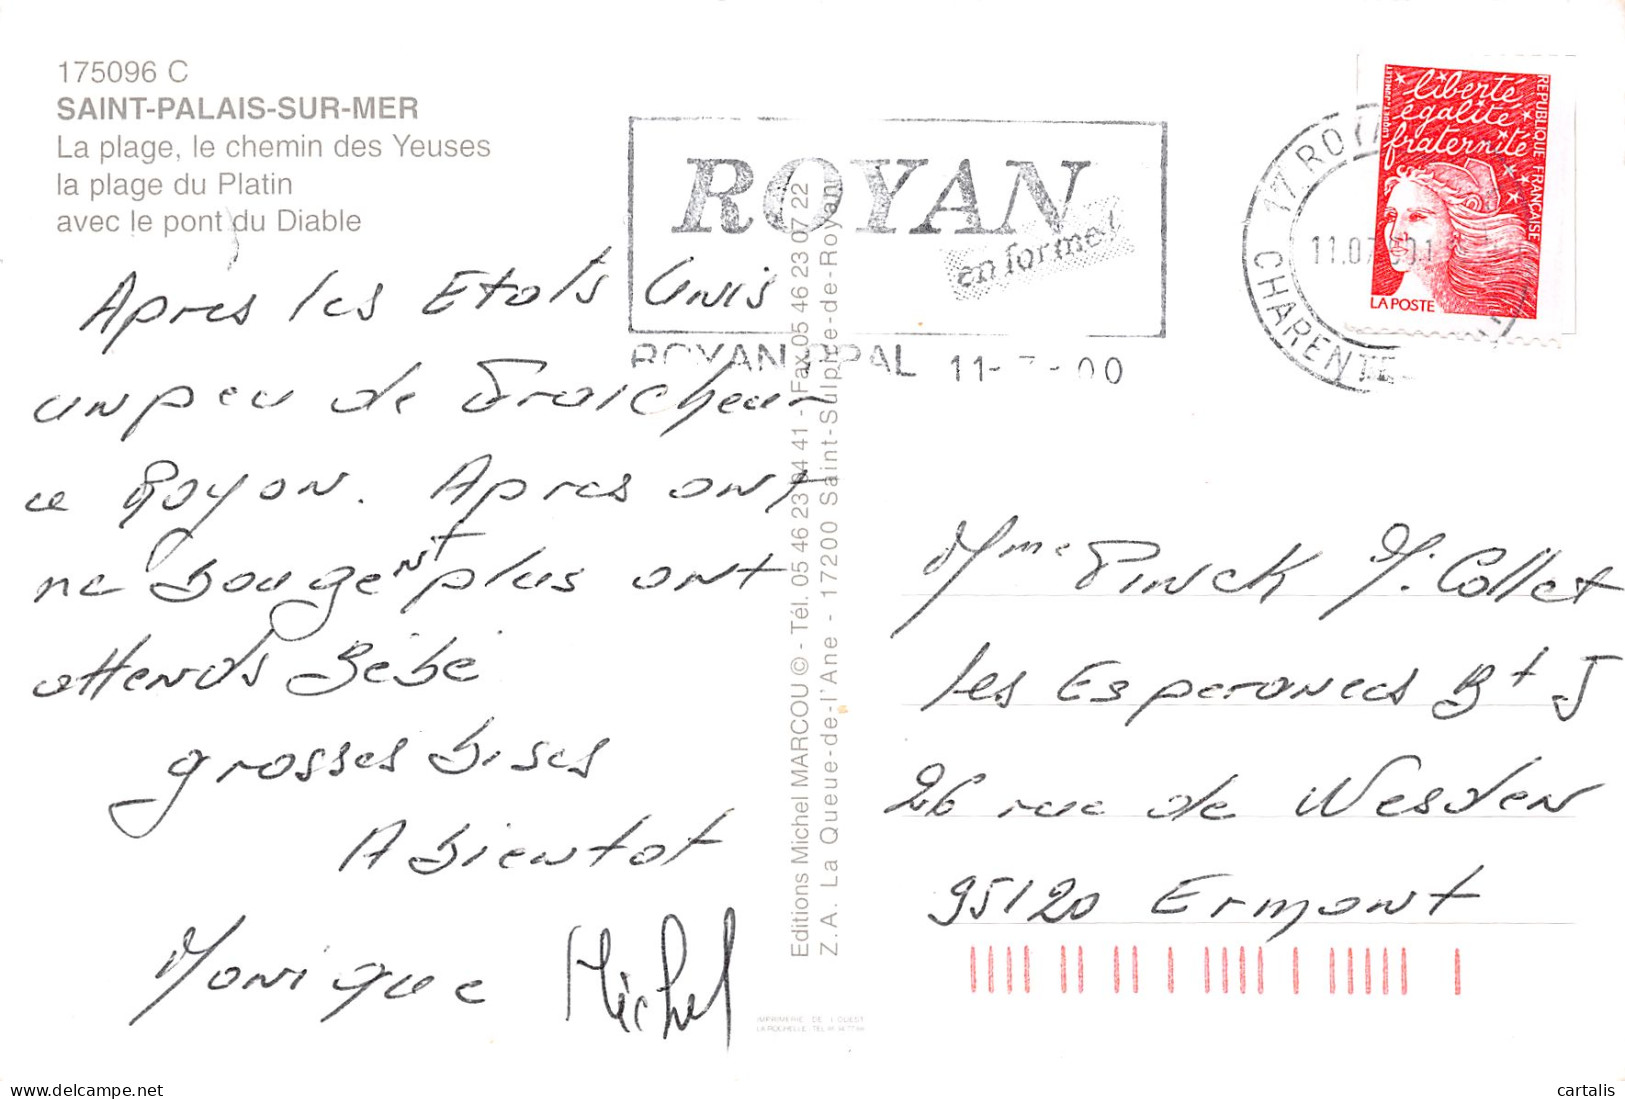 175096 C
SAINT-PALAIS-SUR-MER
La plage, le chemin des Yeuses
la plage du Platin
avec le pont du Diable
Apres les Etats Unis
un peu de Fraicheur
ce Royan. Apres ont
ne Bougent plus ont
attends Bébé
grosses bises
A bientot
Monique Michel
Editions Michel MARCOU © - Tél. 05 46 23 04 41 - Fax 05 46 23 07 22
Z.A. La Queue-de-l'Ane - 17200 Saint-Sulpice-de-Royan
IMPRIMERIE DE L'OUEST
LA ROCHELLE
ROYAN
en forme!
ROYAN PPAL 11-7-00
17 ROYAN
11.07
CHARENTE-
liberté
égalité
fraternité
REPUBLIQUE FRANÇAISE
LA POSTE
Mme Pinck M. Collet
les Esperances Bt J
26 rue de Wesden
95120 Ermont
cartalis